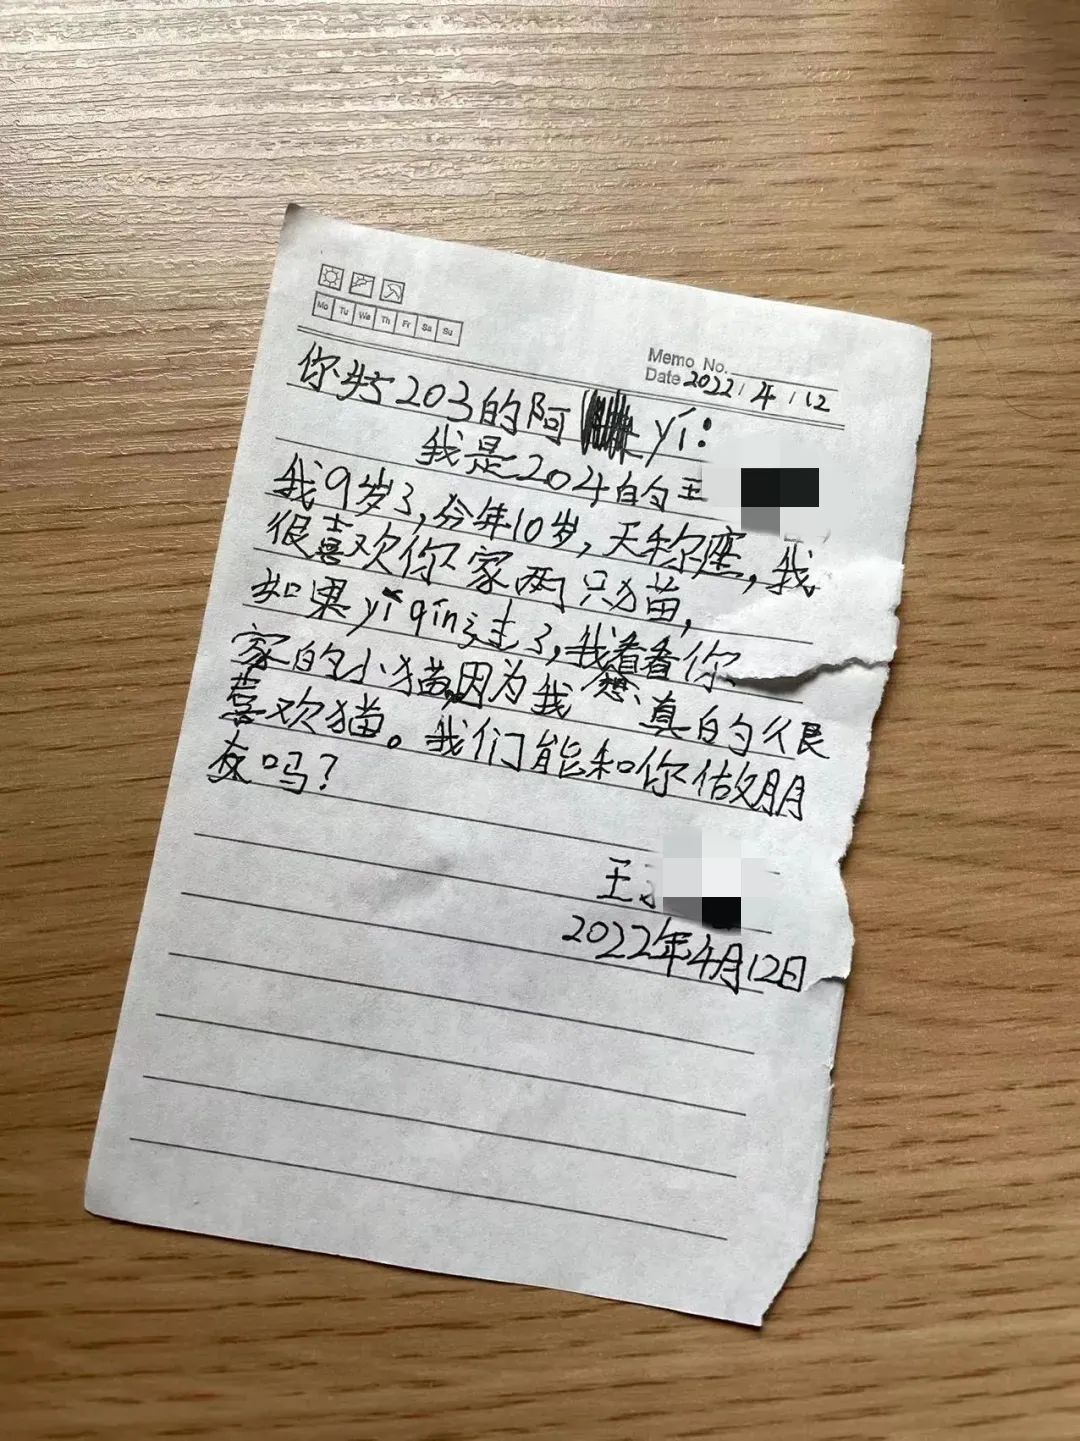 Mo Tu We Th Fr Sa Su
Memo No.
Date 2022 / 4 / 12
你好203的阿 yí:
我是204的王
我9岁了,今年10岁,天称座,我
很喜欢你家两只猫,
如果yì qíng走了,我看看你
想
家的小猫,因为我 真的很
喜欢猫。我们能和你做朋
友吗?
王
2022年4月12日